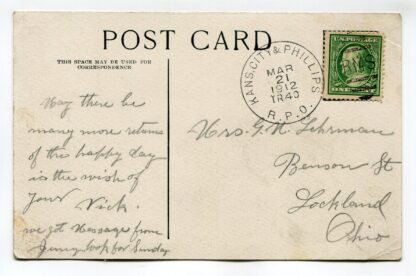 POST CARD
THIS SPACE MAY BE USED FOR
CORRESPONDENCE
KANS. CITY & PHILLIPS
MAR
21
1912
TR43
R.P.O.
U.S. POSTAGE
ONE CENT
May there be
many more returns
of the happy day
is the wish of
Your Vick.
we got Message from
for Sunday
Mrs. G. N. Lehrman
Benson St
Lockland
Ohio